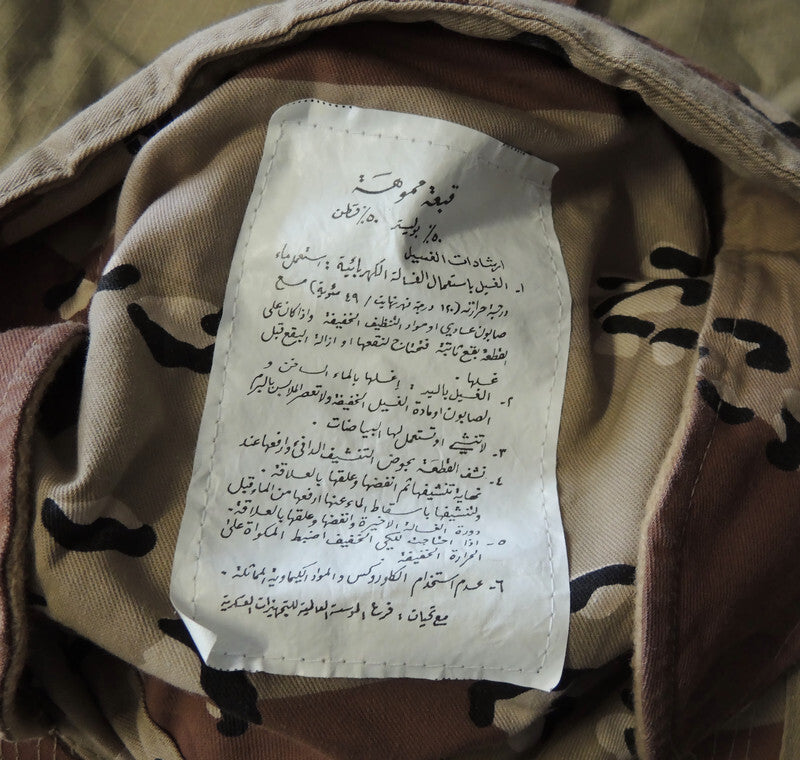 قبعة مموهة
٥٠٪ بوليستر ٥٠٪ قطن
ارشادات الغسيل
١- الغسيل باستعمال الغسالة الكهربائية : ستعمل ماء
درجة حرارته (١٢٠ درجة فهرنهايت / ٤٩ مئوية) مع
صابون عادي او مواد التنظيف الخفيفة واذا كان على
القطعة بقع ثابتة فتحتاج لنقعها او ازالة البقع قبل
غسلها .
٢- الغسيل باليد : إغسلها بالماء الساخن و
الصابون او مادة الغسيل الخفيفة ولا تعصر الملابس بالبرم
٣- لا تنشي او تستعمل لها البياضات .
٤- نشف القطعة بحوض التنشيف الدافئ وارفعها عند
نهاية تنشيفها ثم انفضها وعلقها بالعلاقة .
ولتنشيفها باسقاط الماء عنها ارفعها من الماء وقبل
دورة الغسالة الاخيرة وانفضها وعلقها بالعلاقة .
٥- اذا احتاجت للكي الخفيف اضبط المكواة على
الحرارة الخفيفة
٦- عدم استخدام الكلوروكس والمواد الكيماوية المماثلة .
مع تحيات : فرع المؤسسة العالمية للتجهيزات العسكرية